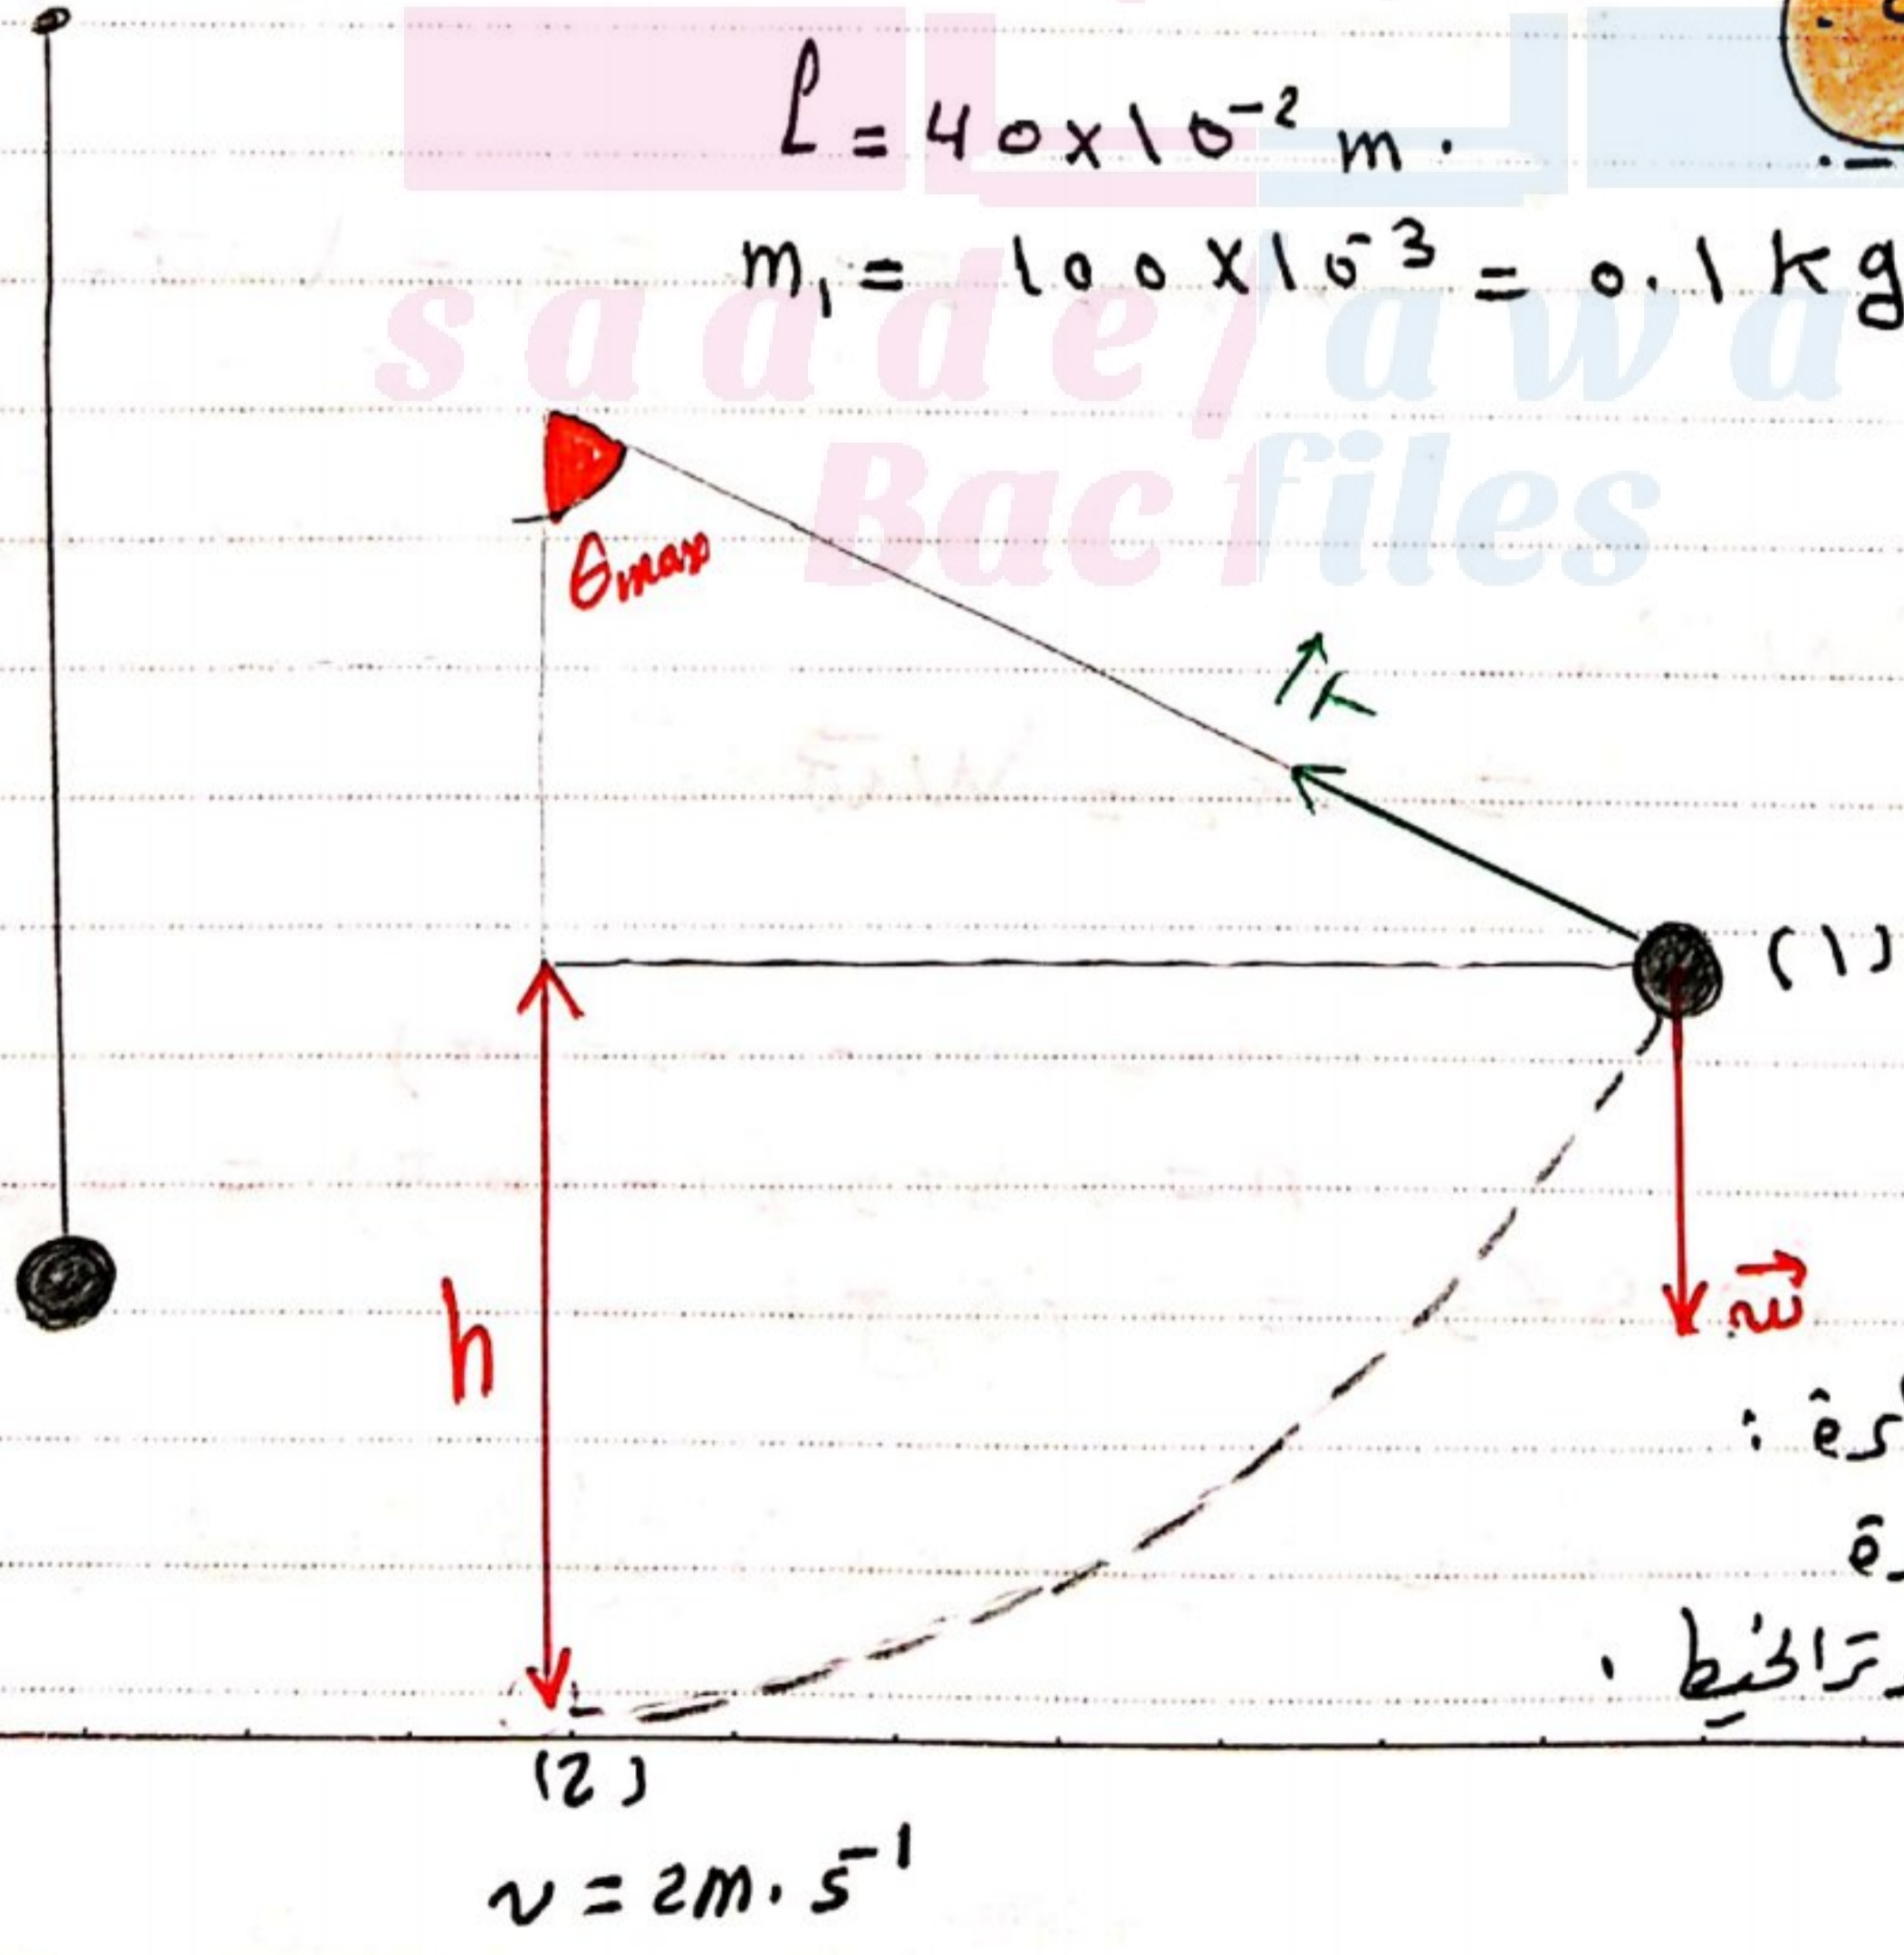 ℓ = 40×10⁻² m.
m₁ = 100×10⁻³ = 0.1 kg
saade/awa
Bac files
θmax
T⃗
(1)
h
w⃗
(2)
v = 2m.s⁻¹